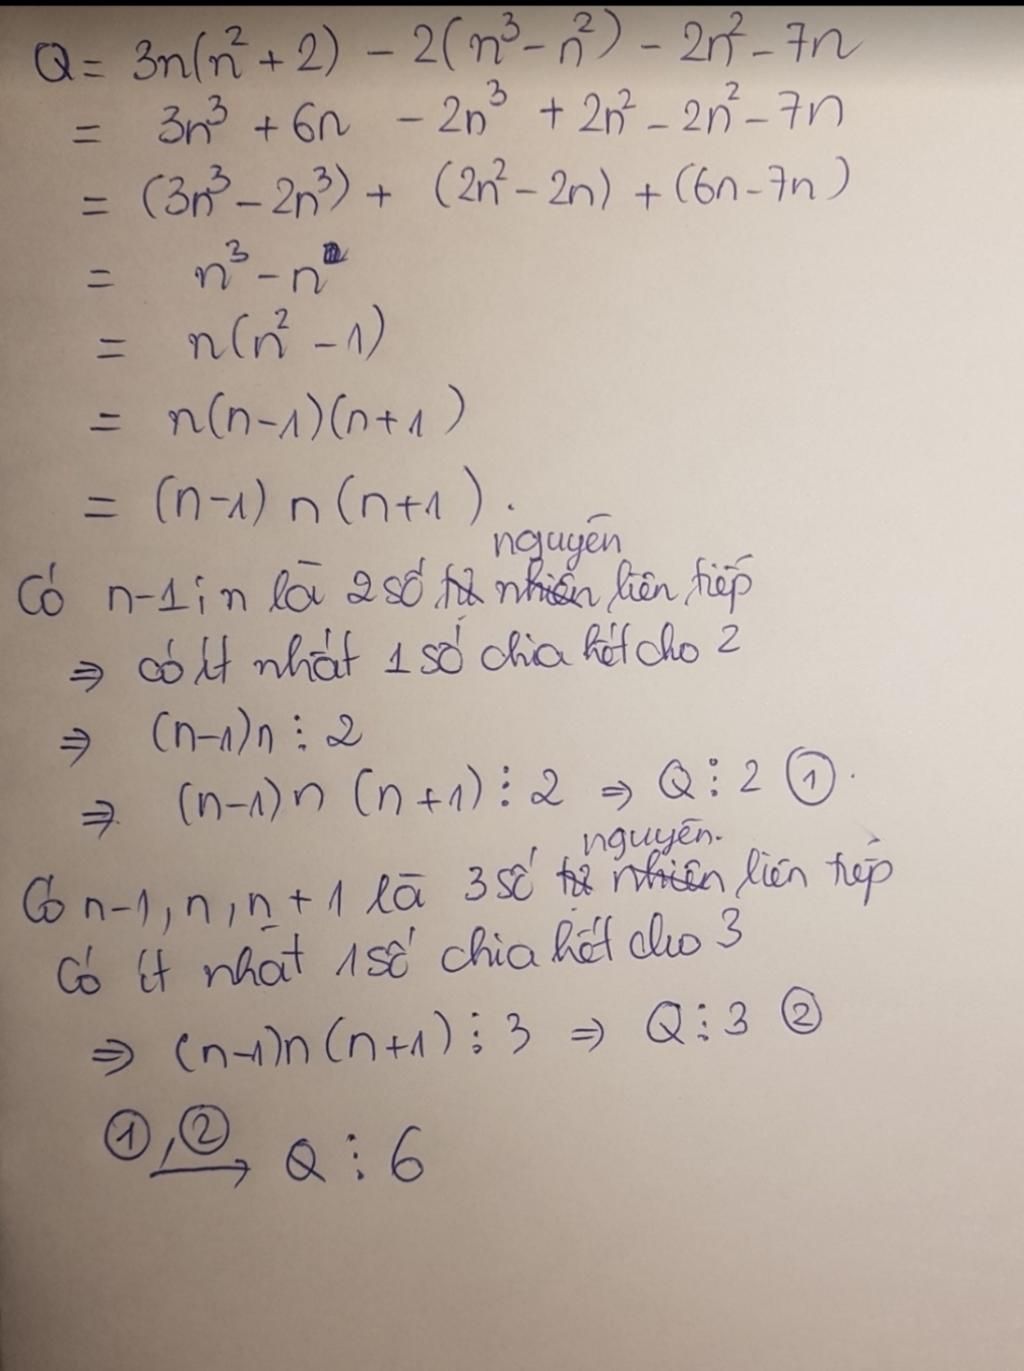 Q = 3n(n² + 2) - 2(n³ - n²) - 2n² - 7n
= 3n³ + 6n - 2n³ + 2n² - 2n² - 7n
= (3n³ - 2n³) + (2n² - 2n) + (6n - 7n)
= n³ - n
= n(n² - 1)
= n(n-1)(n+1)
= (n-1) n (n+1).
nguyên
Có n-1; n là 2 số tự nhiên liên tiếp
⇒ có ít nhất 1 số chia hết cho 2
⇒ (n-1)n ⋮ 2
⇒ (n-1)n (n+1) ⋮ 2 ⇒ Q ⋮ 2 ①.
nguyên.
Có n-1, n, n + 1 là 3 số tự nhiên liên tiếp
Có ít nhất 1 số chia hết cho 3
⇒ (n-1)n (n+1) ⋮ 3 ⇒ Q ⋮ 3 ②
①, ② → Q ⋮ 6